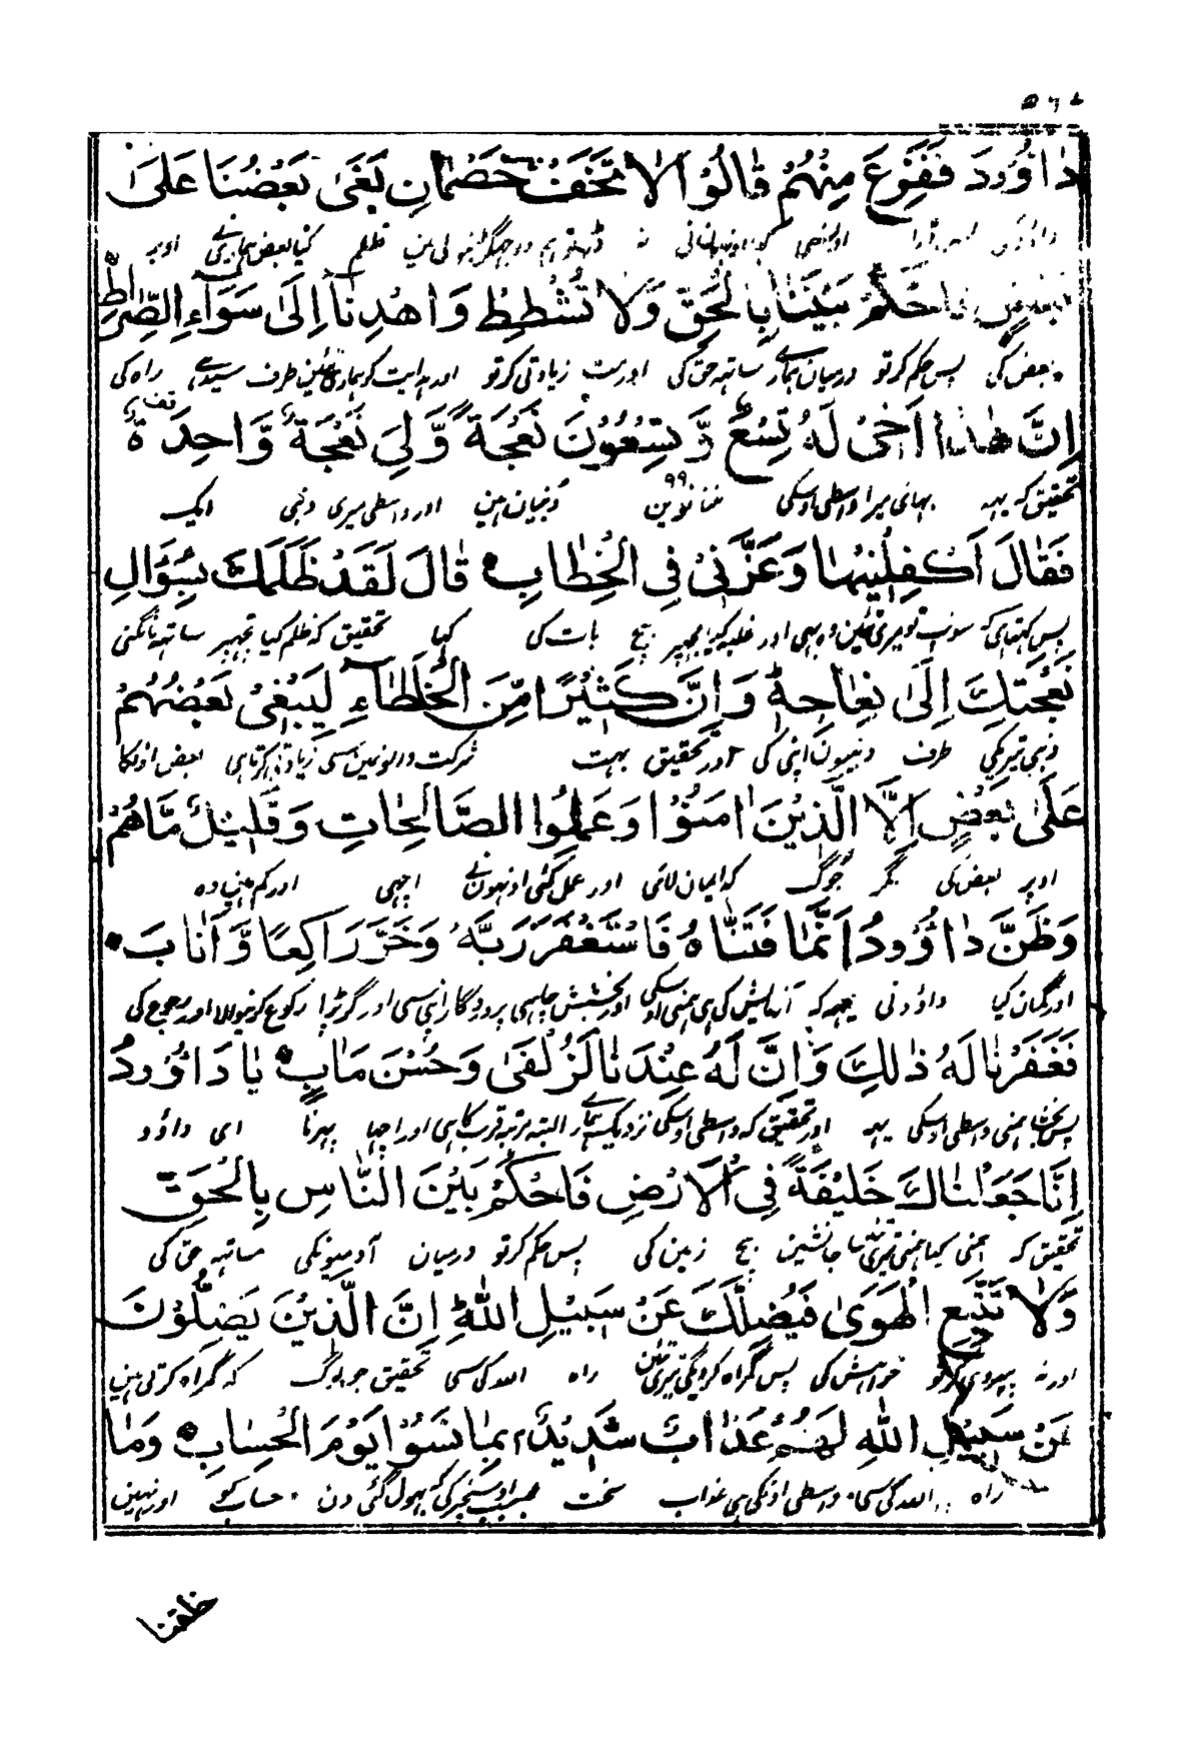 دَاوٗدَ فَفَزِعَ مِنْهُمْ قَالُوْا لَا تَخَفْ خَصْمَانِ بَغٰى بَعْضُنَا عَلٰى
نہ دو جھگڑنیوالی ہین ظلم کیا بعض ہماری نے اوپر
بَعْضٍ فَاحْكُمْ بَيْنَنَا بِالْحَقِّ وَلَا تُشْطِطْ وَاهْدِنَآ اِلٰى سَوَآءِ الصِّرَاطِ
بعض کی پس حکم کر تو درمیان ہمارے ساتہہ حق کی اور مت زیادتی کر تو اور ہدایت کر ہماری تئین طرف سیدہے راہ کی
اِنَّ هٰذَا اَخِيْ لَهٗ تِسْعٌ وَّتِسْعُوْنَ نَعْجَةً وَّلِيَ نَعْجَةٌ وَّاحِدَةٌ
تحقیق کہ یہہ بہائی میرا واسطی اوسکی ننانوین ۹۹ دنبیان ہین اور واسطی میری دنبی ایک
فَقَالَ اَكْفِلْنِيْهَا وَعَزَّنِيْ فِي الْخِطَابِ قَالَ لَقَدْ ظَلَمَكَ بِسُؤَالِ
پس کہتا ہی سونپ تو میری تئین وہ بہی اور غلبہ کیا مجہپر بیچ بات کی کہا تحقیق کہ ظلم کیا تجہپر ساتہہ مانگنی
نَعْجَتِكَ اِلٰى نِعَاجِهٖ وَاِنَّ كَثِيْرًا مِّنَ الْخُلَطَآءِ لَيَبْغِيْ بَعْضُهُمْ
دنبی تیریکی طرف دنبیون اپنی کی اور تحقیق بہت شرکت والونمین سی زیادتی کرتا ہی بعض اونکا
عَلٰى بَعْضٍ اِلَّا الَّذِيْنَ اٰمَنُوْا وَعَمِلُوا الصَّالِحَاتِ وَقَلِيْلٌ مَّا هُمْ
اوپر بعض کی مگر جو لوگ کہ ایمان لائی اور عمل کئی اونہون نے اچہی اور کم ہین وہ
وَظَنَّ دَاوٗدُ اَنَّمَا فَتَنَّاهُ فَاسْتَغْفَرَ رَبَّهٗ وَخَرَّ رَاكِعًا وَّاَنَابَ
اور گمان کیا داؤد نی یہہ کہ آزمایش کی ہی ہمنی اوسکی اور بخشش چاہی پروردگار اپنی سی اور گر پڑا رکوع کرنیوالا اور رجوع کی
فَغَفَرْنَا لَهٗ ذٰلِكَ وَاِنَّ لَهٗ عِنْدَنَا لَزُلْفٰى وَحُسْنَ مَاٰبٍ يَا دَاوٗدُ
پس بخشا ہمنی واسطی اوسکی یہہ اور تحقیق کہ واسطی اوسکی نزدیک ہمارے البتہ مرتبہ قرب کا ہی اور اچہا پہرنا ای داؤد
اِنَّا جَعَلْنَاكَ خَلِيْفَةً فِي الْاَرْضِ فَاحْكُمْ بَيْنَ النَّاسِ بِالْحَقِّ
تحقیق کہ ہمنی کیا ہمنی تیری تئین جانشین بیچ زمین کی پس حکم کر تو درمیان آدمیونکی ساتہہ حق کی
وَلَا تَتَّبِعِ الْهَوٰى فَيُضِلَّكَ عَنْ سَبِيْلِ اللّٰهِ اِنَّ الَّذِيْنَ يَضِلُّوْنَ
اور نہ پیروی کر تو خواہش کی پس گمراہ کردیگی تیری تئین راہ اللہ کی سی تحقیق جو لوگ کہ گمراہ کرتی ہین
عَنْ سَبِيْلِ اللّٰهِ لَهُمْ عَذَابٌ شَدِيْدٌ بِمَا نَسُوْا يَوْمَ الْحِسَابِ وَمَا
راہ اللہ کی سی واسطی اونکی ہی عذاب سخت بسبب اوس چیز کی کہ بہول گئی دن حساب کو اور نہین
خلقنا